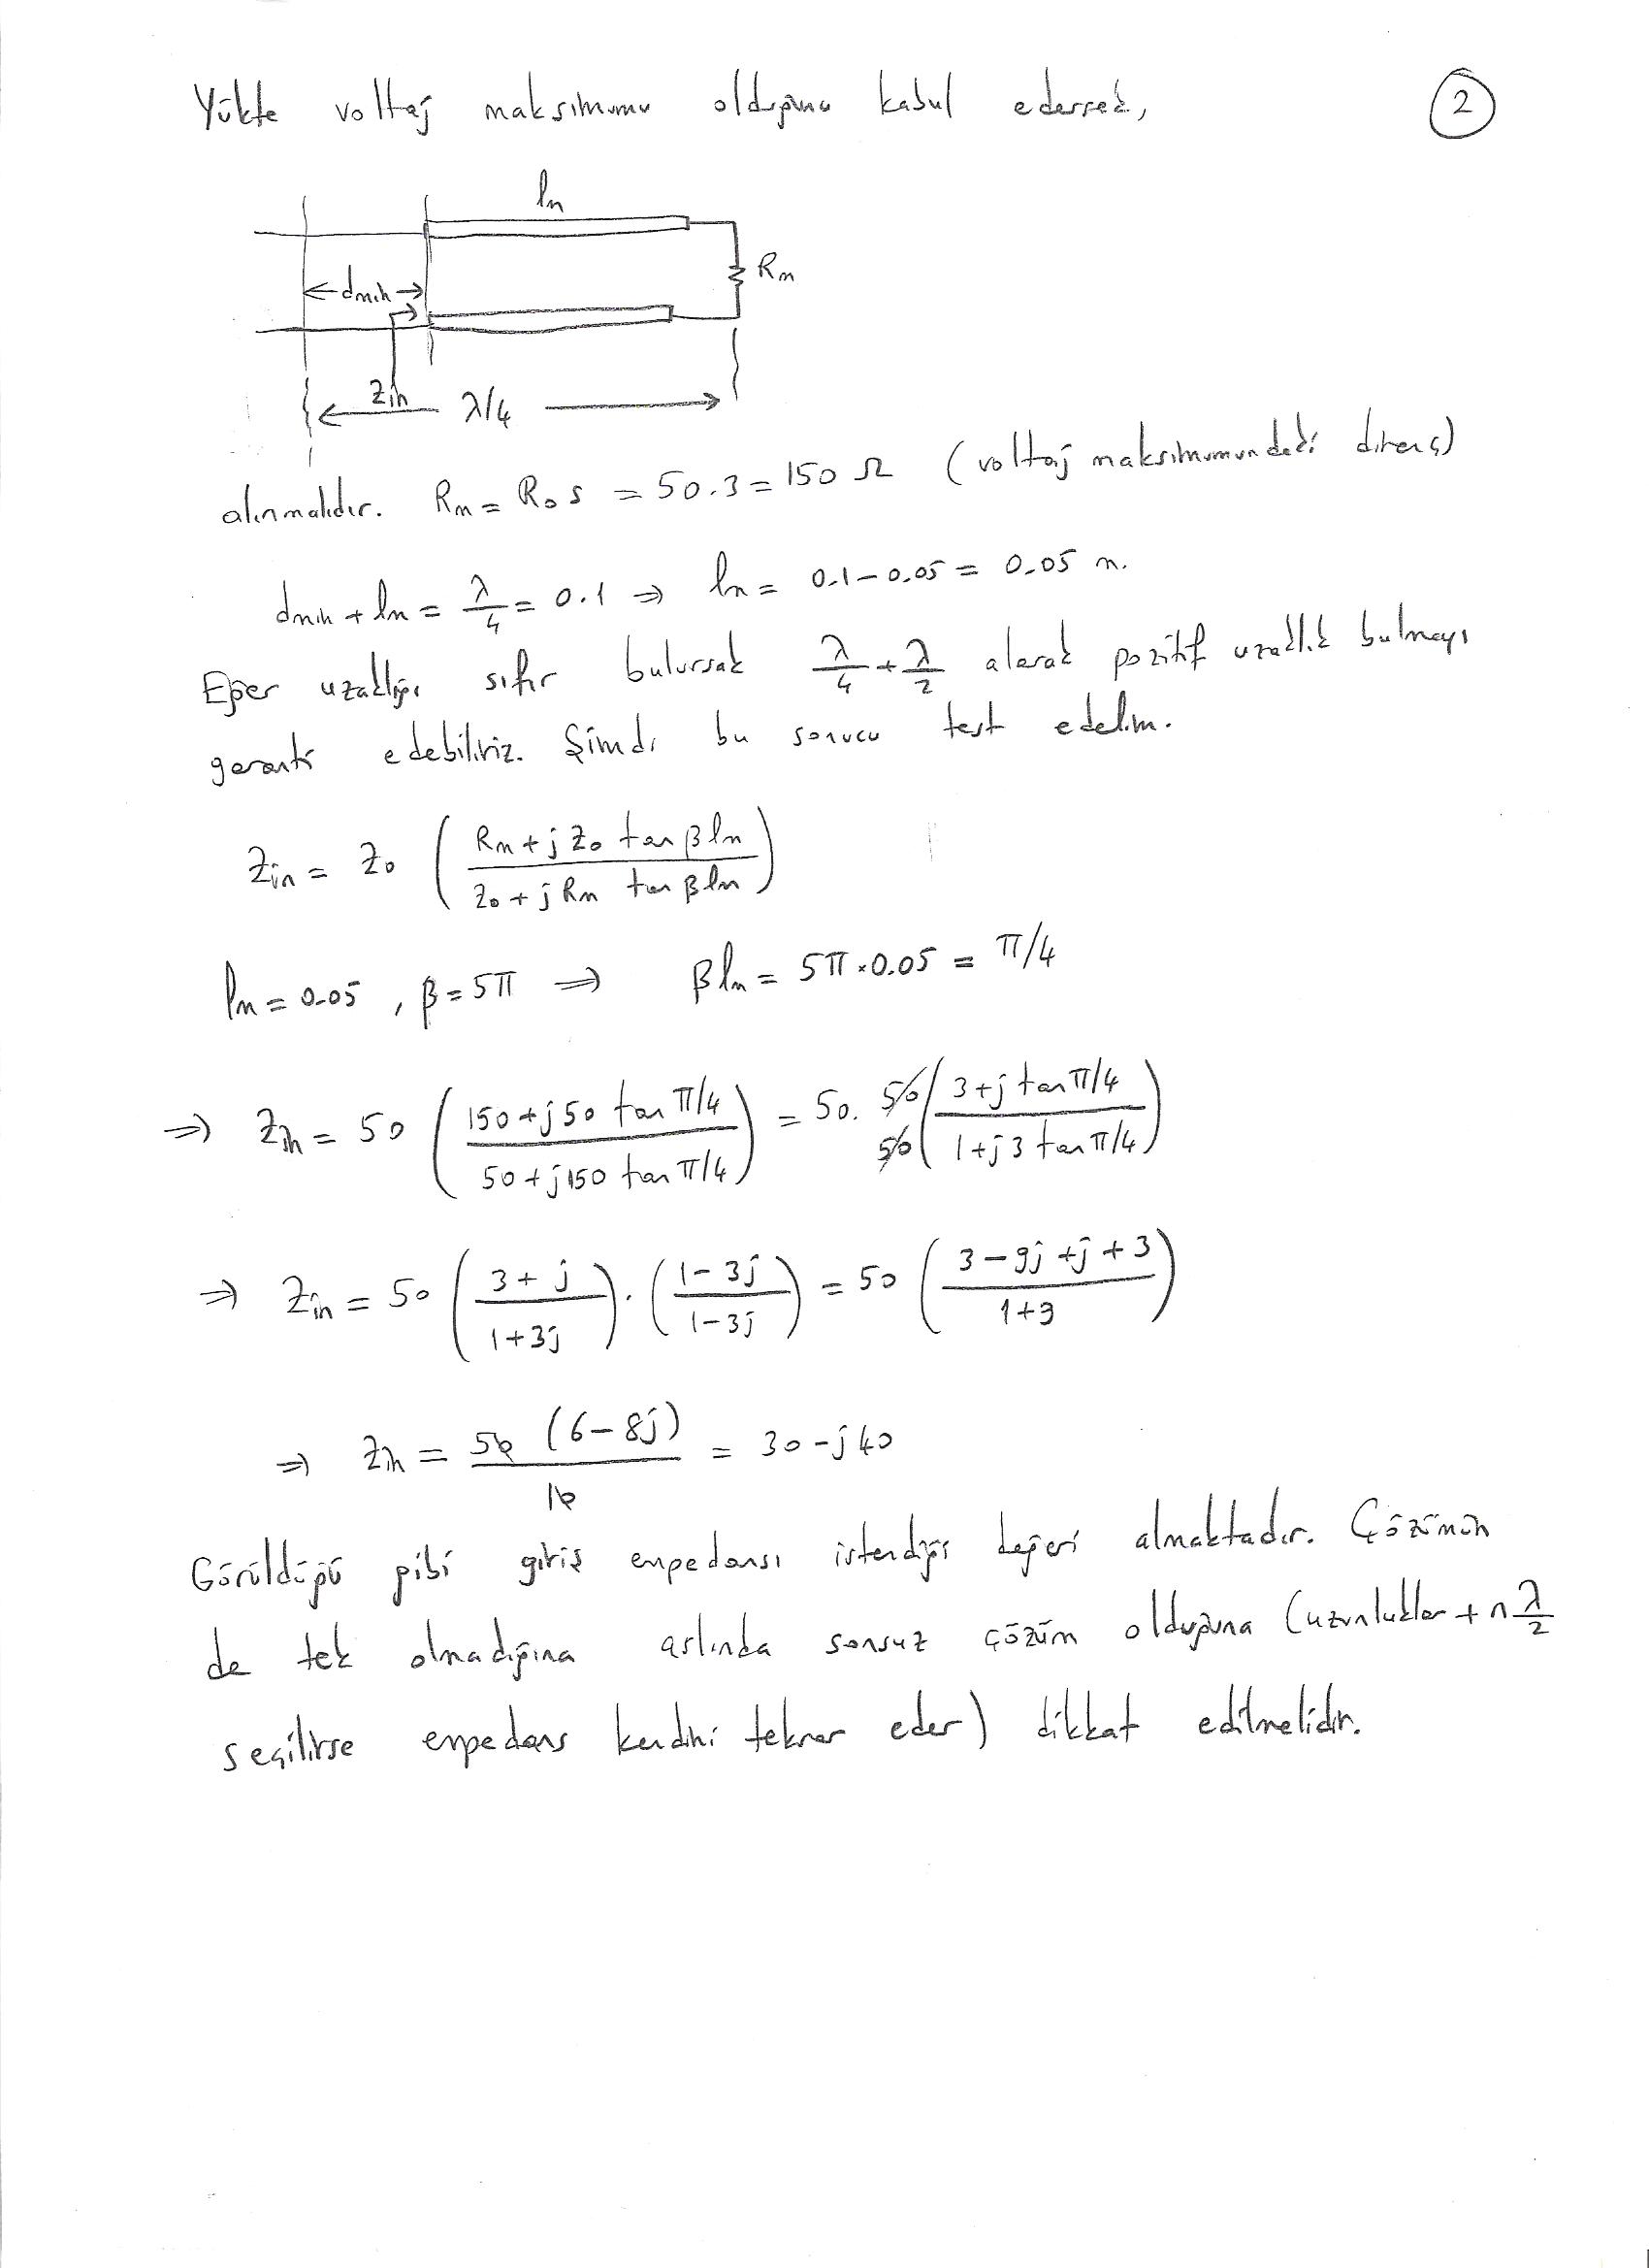 Yükte voltaj maksimumu olduğunu kabul edersek,
2
lm
Rm
dmin
Zin
λ/4
alınmalıdır. Rm = R₀ s = 50.3 = 150 Ω (voltaj maksimumundaki direnç)
dmin + lm = λ/4 = 0.1 ⇒ lm = 0.1 - 0.05 = 0.05 m.
Eğer uzaklığı sıfır bulursak λ/4 + λ/2 alarak pozitif uzaklık bulmayı
garanti edebiliriz. Şimdi bu sonucu test edelim.
Zin = Z₀ ( (Rm + j Z₀ tan βlm) / (Z₀ + j Rm tan βlm) )
lm = 0.05 , β = 5π ⇒ βlm = 5π × 0.05 = π/4
⇒ Zin = 50 ( (150 + j50 tan π/4) / (50 + j150 tan π/4) ) = 50. 50/50 ( (3 + j tan π/4) / (1 + j3 tan π/4) )
⇒ Zin = 50 ( (3 + j) / (1 + 3j) ) . ( (1 - 3j) / (1 - 3j) ) = 50 ( (3 - 9j + j + 3) / (1 + 9) )
⇒ Zin = 50 (6 - 8j) / 10 = 30 - j40
Görüldüğü gibi giriş empedansı istendiği değeri almaktadır. Çözümün
de tek olmadığına aslında sonsuz çözüm olduğuna (uzunluklar + n λ/2
seçilirse empedans kendini tekrar eder) dikkat edilmelidir.